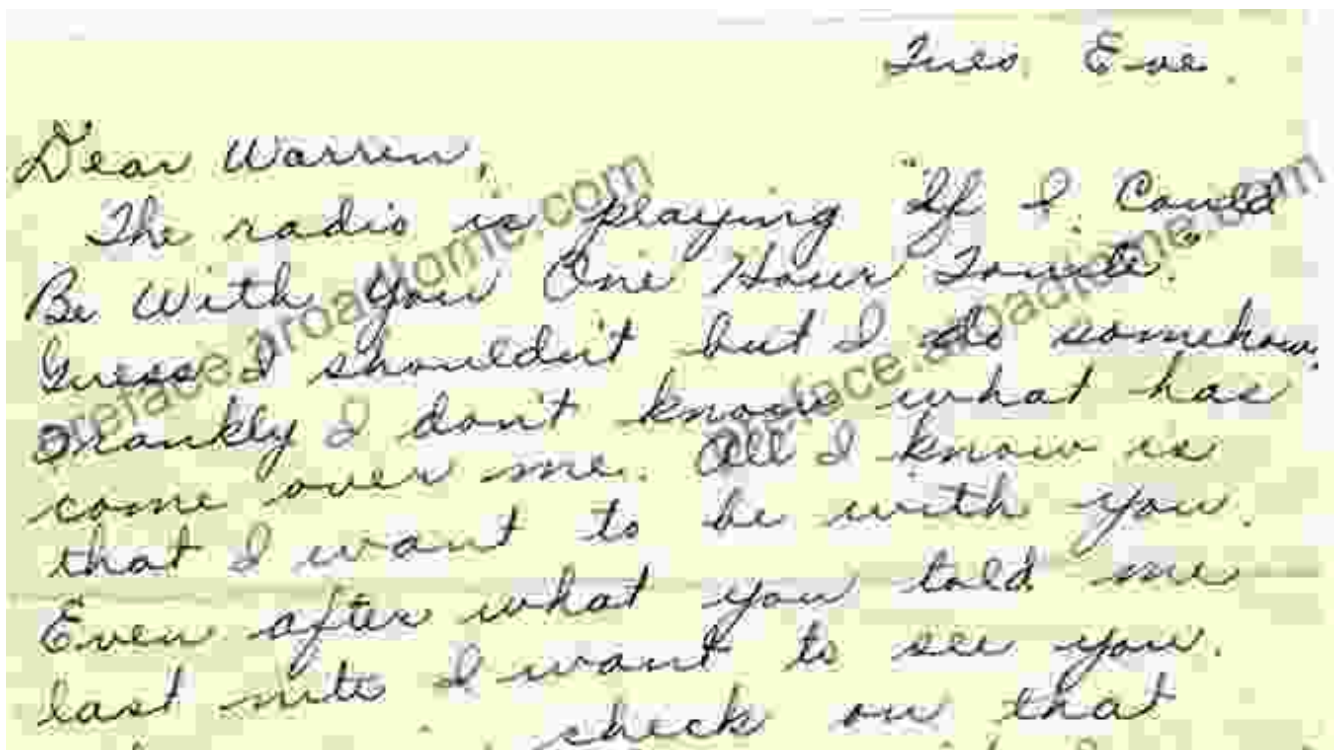 Tues. Eve.
Dear Warren,
The radio is playing "If I Could
Be With You One Hour Tonite."
Guess I shouldn't but I do somehow,
Frankly I don't know what has
come over me. All I know is
that I want to be with you.
Even after what you told me
last nite I want to see you.
check on that
preface.aroadtome.com
preface.aroadtome.com